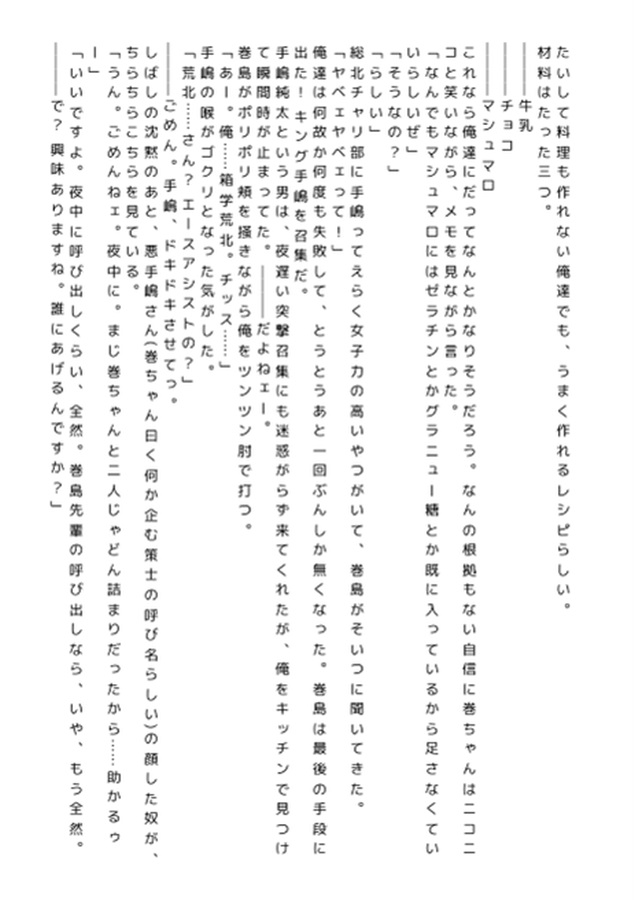 たいして料理も作れない俺達でも、うまく作れるレシピらしい。
材料はたった三つ。
――――牛乳
――――チョコ
――――マシュマロ
これなら俺達にだってなんとかなりそうだろう。なんの根拠もない自信に巻ちゃんはニコニ
コと笑いながら、メモを見ながら言った。
「なんでもマシュマロにはゼラチンとかグラニュー糖とか既に入っているから足さなくてい
いらしいぜ」
「そうなの？」
「らしい」
総北チャリ部に手嶋ってえらく女子力の高いやつがいて、巻島がそいつに聞いてきた。
「ヤベェヤベェって！」
俺達は何故か何度も失敗して、とうとうあと一回ぶんしか無くなった。巻島は最後の手段に
出た！キング手嶋を召集だ。
手嶋純太という男は、夜遅い突撃召集にも迷惑がらず来てくれたが、俺をキッチンで見つけ
て瞬間時が止まってた。――――だよねェー。
巻島がポリポリ頬を掻きながら俺をツンツン肘で打つ。
「あー。俺……箱学荒北。チッス……」
手嶋の喉がゴクリとなった気がした。
「荒北……さん？エースアシストの？」
――――ごめん。手嶋、ドキドキさせてっ。
しばしの沈黙のあと、悪手嶋さん(巻ちゃん曰く何か企む策士の呼び名らしい)の顔した奴が、
ちらちらこちらを見ている。
「うん。ごめんねェ。夜中に。まじ巻ちゃんと二人じゃどん詰まりだったから……助かるゥ
ー」
「いいですよ。夜中に呼び出しくらい、全然。巻島先輩の呼び出しなら、いや、もう全然。
――――で？興味ありますね。誰にあげるんですか？」